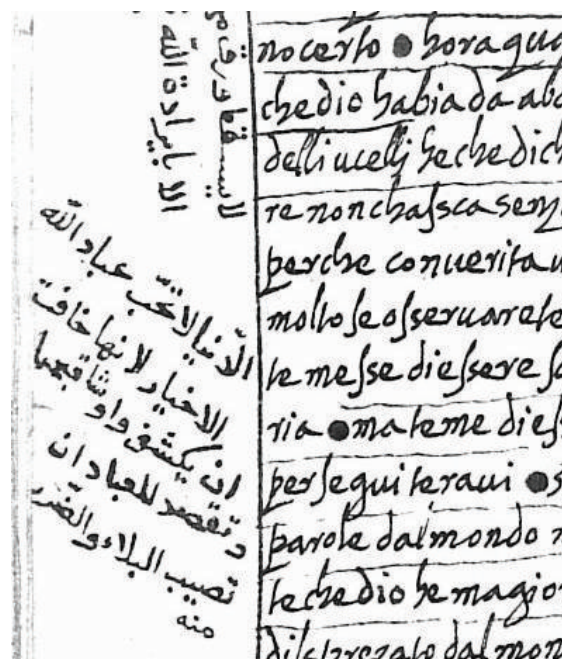 لايسقط ورق من
الا بايرادة الله
الدّنيا لا تحبّ عباد الله
الاخيار لانها خافت
ان يكشفوا
وتقصد للعباد ان
تصيب البلاء والضرر
منه
nocerto ● hora qua
che dio habia da aba
delli ucelli he che dich
re non chasca senz
perche conuerita u
molto se osseruarete
te messe di essere sa
ria ● ma teme di es
perseguiteraui ● s
parole dal mondo n
te che dio he magio
dal mon